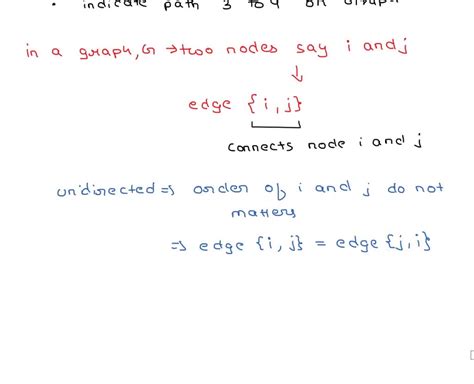 • indicate path 3 to 4 on Graph
in a graph, G → two nodes say i and j
↓
edge {i, j}
connects node i and j
undirected ⇒ order of i and j do not
matters
⇒ edge {i, j} = edge {j, i}
[